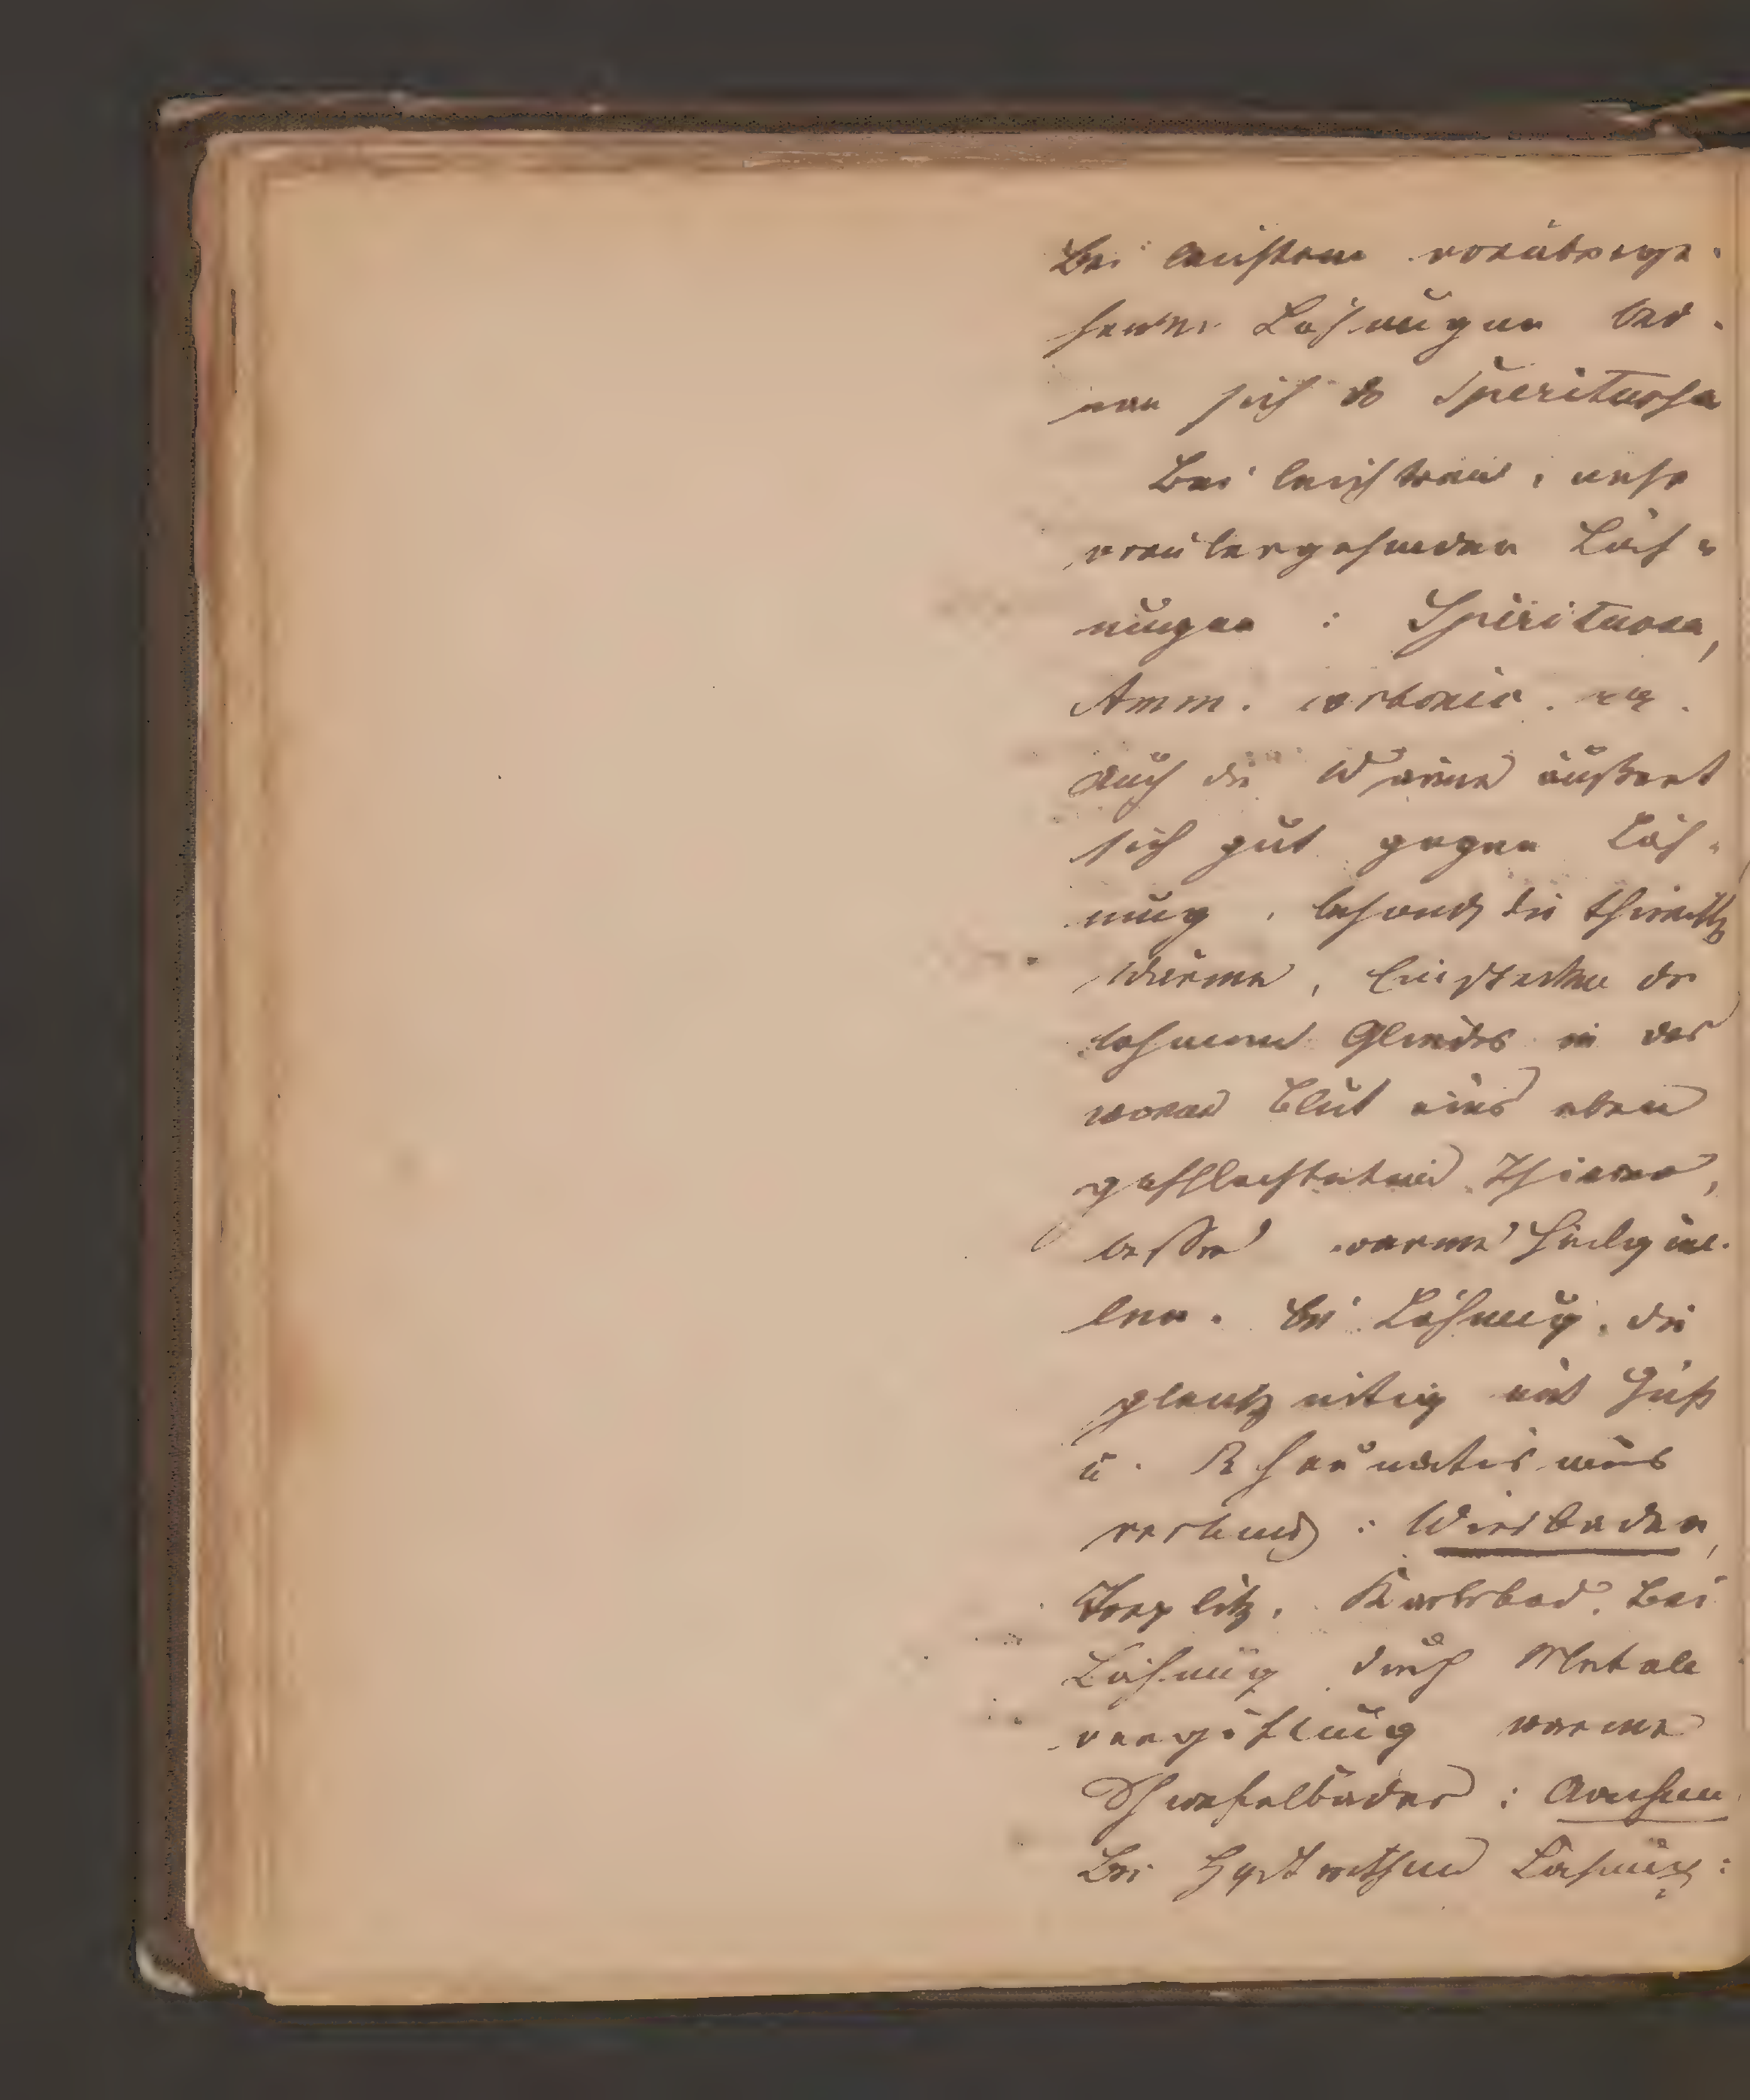 Bei leichtern vorüberge-
henden Lähmungen bed.
man sich d Sperituosa
Bei leichtern, mehr
vorübergehenden Läh=
mungen : Spirituosa,
Amm. carbonic. etc.
auch die Wärme äußert
sich gut gegen Läh-
mung, besonds die thierische
Wärme, Einstecken des
lahmen Gliedes in das
warme Blut eines eben
geschlachteten Thieres,
besser warme Heilquel-
len. bei Lähmung, die
gleichzeitig mit Gicht
u. Rheumatismus
verbund : Wiesbaden,
Toeplitz, Karlsbad. Bei
Lähmung durch Metall
vergiftung warme
Schwefelbäder : Aachen
Bei Hysterischen Lähmung :